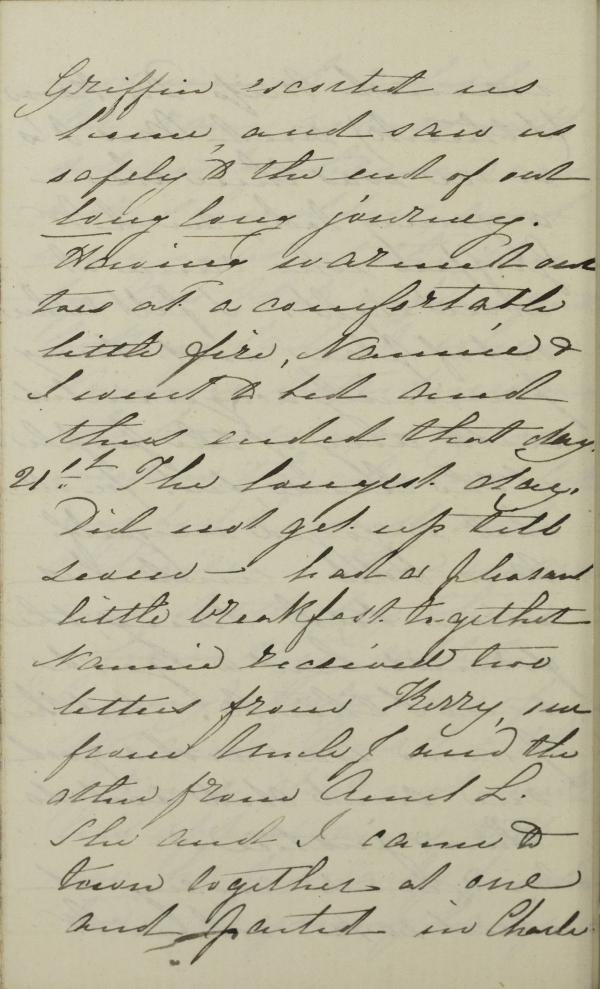 Griffin escorted us
home, and saw us
safely to the end of our
long long journey.
Having warmed our
toes at a comfortable
little fire, Nannie &
I went to bed and
thus ended that day.
21st. The longest day.
Did not get up till
seven — had a pleasant
little breakfast together
Nannie received two
letters from Kerry, one
from Uncle J and the
other from Aunt L.
She and I came to
town together at one
and parted in Charle